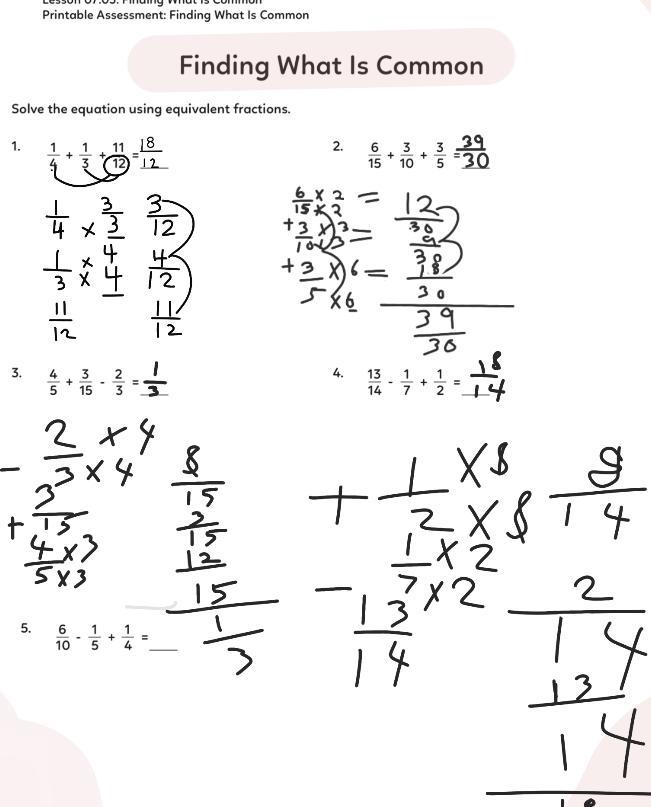 Lesson 07.05: Finding What Is Common
Printable Assessment: Finding What Is Common
Finding What Is Common
Solve the equation using equivalent fractions.
1. 1/4 + 1/3 + 11/12 = 18/12
1/4 × 3/3 3/12
1/3 × 4/4 4/12
11/12 11/12
2. 6/15 + 3/10 + 3/5 = 39/30
6/15 × 2/2 = 12/30
+ 3/10 × 3/3 = 9/30
+ 3/5 × 6/6 = 18/30
39/30
3. 4/5 + 3/15 - 2/3 = 1/3
- 2/3 × 4/4 8/15
+ 3/15 3/15
4/5 × 3/3 12/15
1/3
4. 13/14 - 1/7 + 1/2 = 18/14
+ 1/2 × 8/8 9/14
- 1/7 × 2/2 2/14
13/14 13/14
18
5. 6/10 - 1/5 + 1/4 = __